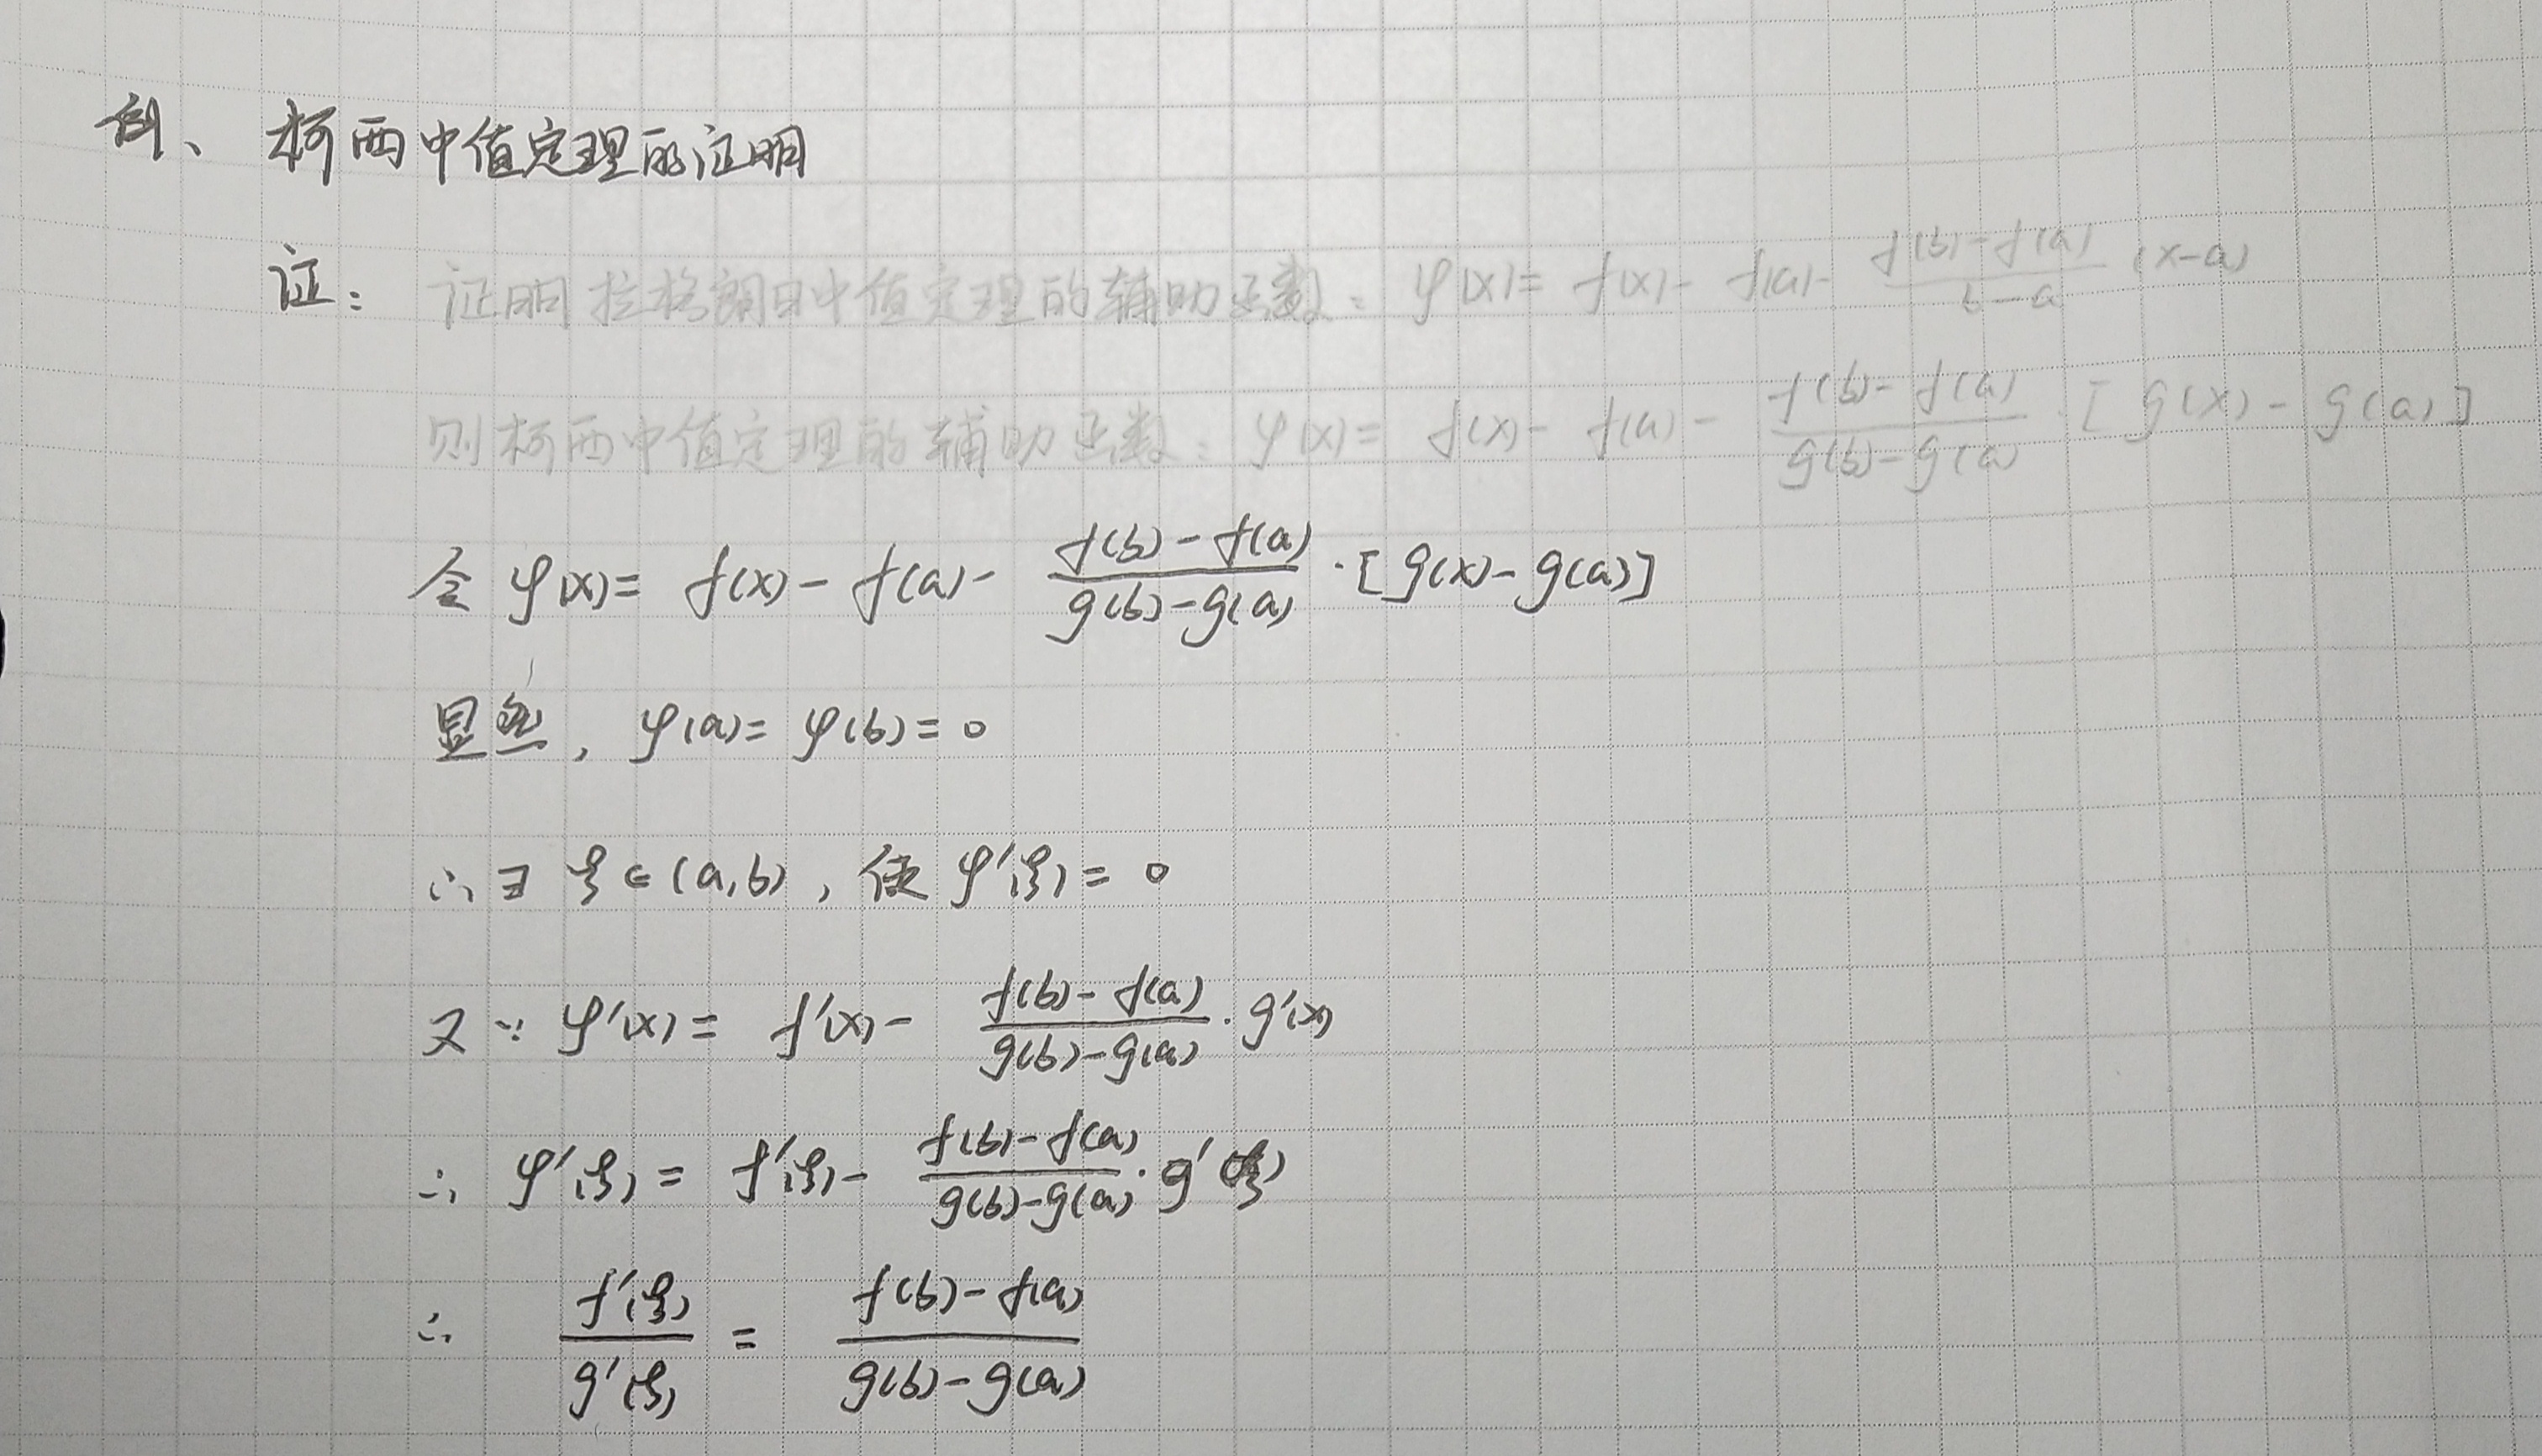 例、柯西中值定理的证明
证: 证明拉格朗日中值定理的辅助函数: φ(x)= f(x)- f(a)- \frac{f(b)-f(a)}{b-a} (x-a)
则柯西中值定理的辅助函数: φ(x)= f(x)- f(a)- \frac{f(b)-f(a)}{g(b)-g(a)}·[g(x)-g(a)]
令 φ(x)= f(x)- f(a)- \frac{f(b)-f(a)}{g(b)-g(a)}·[g(x)-g(a)]
显然, φ(a)= φ(b)= 0
∴∃ ξ∈(a,b), 使 φ'(ξ)= 0
又∵ φ'(x)= f'(x)- \frac{f(b)-f(a)}{g(b)-g(a)}·g'(x)
∴ φ'(ξ)= f'(ξ)- \frac{f(b)-f(a)}{g(b)-g(a)}·g'(ξ)
∴ \frac{f'(ξ)}{g'(ξ)} = \frac{f(b)-f(a)}{g(b)-g(a)}